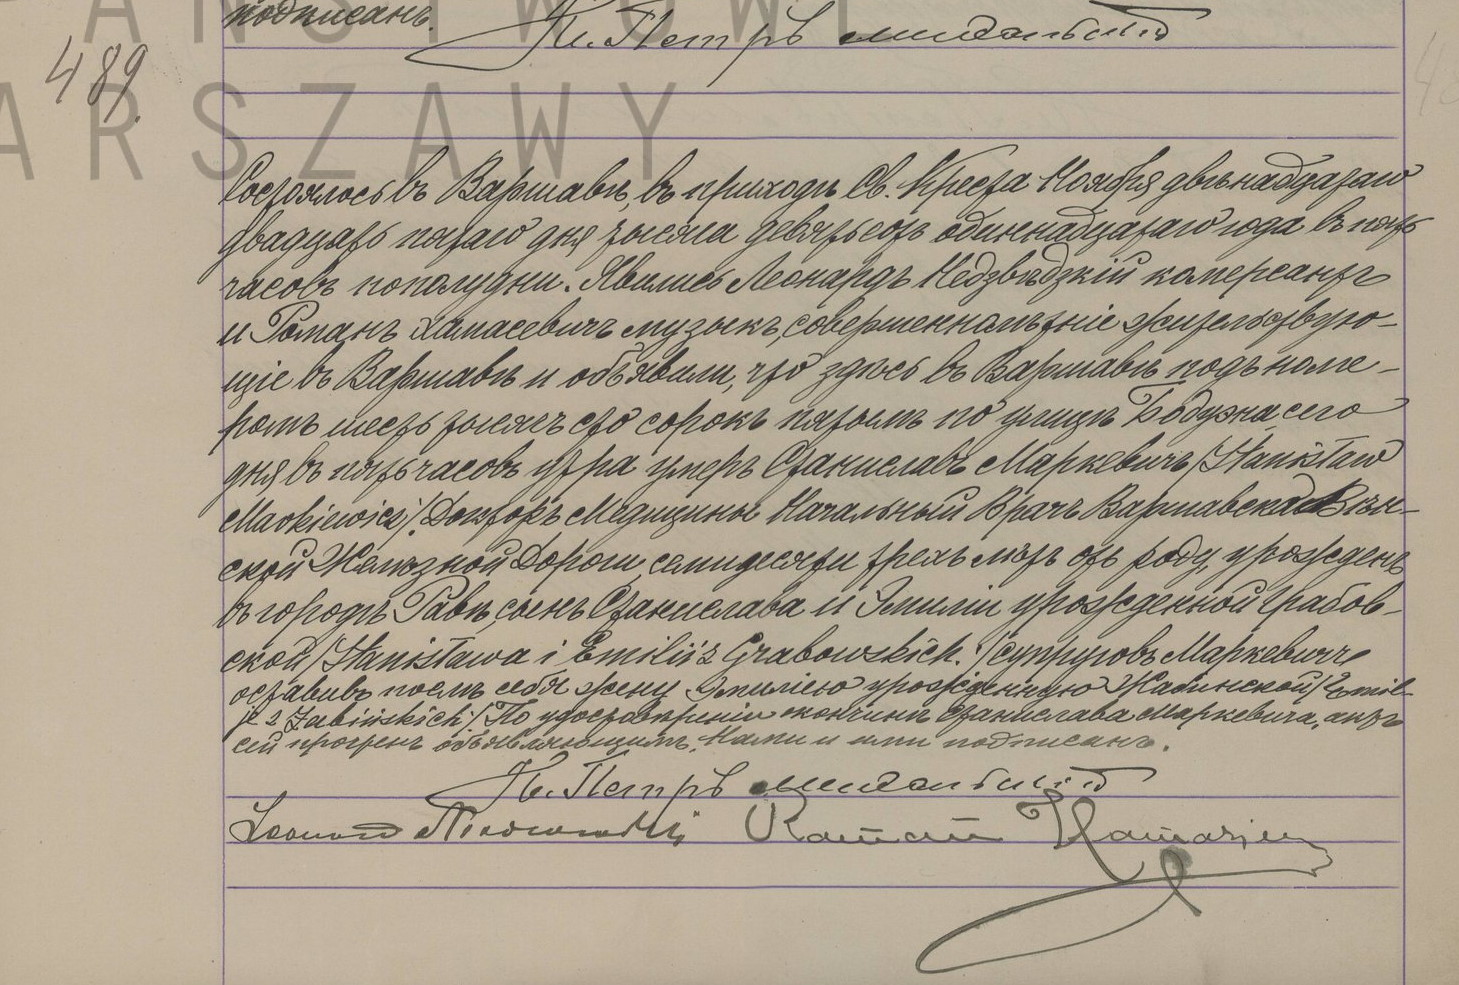 подписанъ.
Кс. Петръ
489.
Состоялось въ Варшавѣ, въ приходѣ Св. Креста Ноября двѣнадцатаго
двадцать пятаго дня тысяча девятьсотъ одиннадцатаго года въ пять
часовъ пополудни. Явились Леонардъ Недзвѣдзкій комерсантъ
и Романъ Хамасевичъ музыкъ, совершеннолѣтніе жительствую-
щіе въ Варшавѣ и объявили, что здѣсь въ Варшавѣ подъ номе-
ромъ шесть тысячъ сто сорокъ пятымъ по улицѣ Бодуэна, сего
дня въ пять часовъ утра умеръ Станиславъ Маркевичъ /Stanisław
Markiewicz/ Докторъ Медицины Начальный Врачъ Варшавско Вѣн-
ской Желѣзной Дороги, семидесяти трехъ лѣтъ отъ роду, урожденъ
въ городѣ Равѣ, сынъ Станислава и Эмиліи урожденной Грабов-
ской /Stanisława i Emilii z Grabowskich./ супруговъ Маркевичъ
оставивъ послѣ себя жену Эмилію урожденную Жабинской /Emil-
je z Żabińskich/ По удостовѣреніи кончины Станислава Маркевича, актъ
сей прочтенъ объявляющимъ, Нами и ими подписанъ.
Кс. Петръ
Roman
PAŃSTWOWE
WARSZAWY